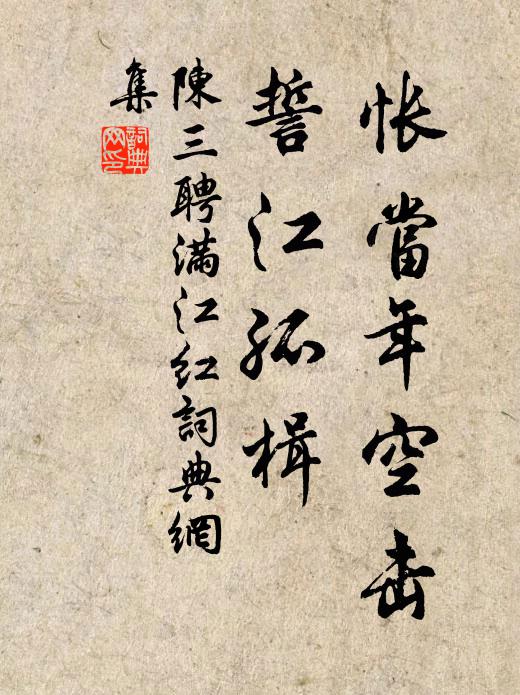 悵當年空击
誓江孤楫
陳三聘满江红詞典網
集
詞典网印